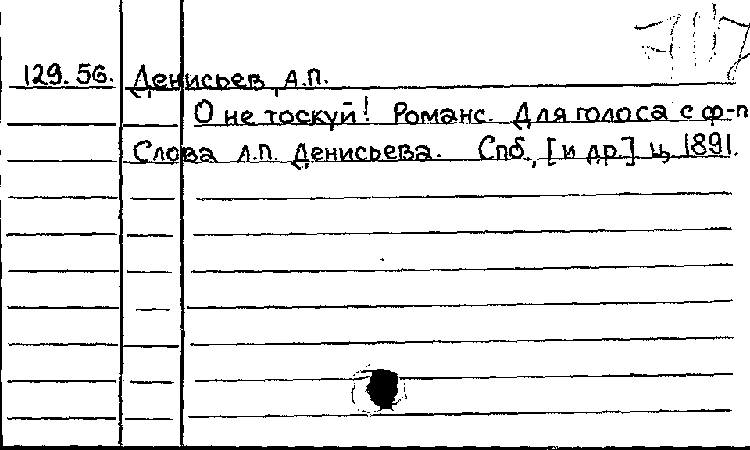 129.56. Денисьев, А.П.
О не тоскуй! Романс. Для голоса с ф-п
Слова А.П. Денисьева. Спб., [и др.] ц. 1891.